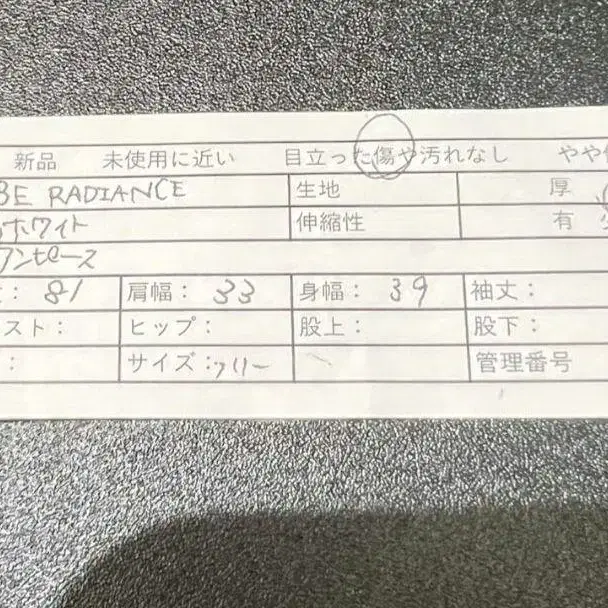 新品 未使用に近い 目立った傷や汚れなし やや
BE RADIANCE 生地 厚
ホワイト 伸縮性 有
ワンピース
: 81 肩幅: 33 身幅: 39 袖丈:
スト: ヒップ: 股上: 股下:
: サイズ:フリー 管理番号